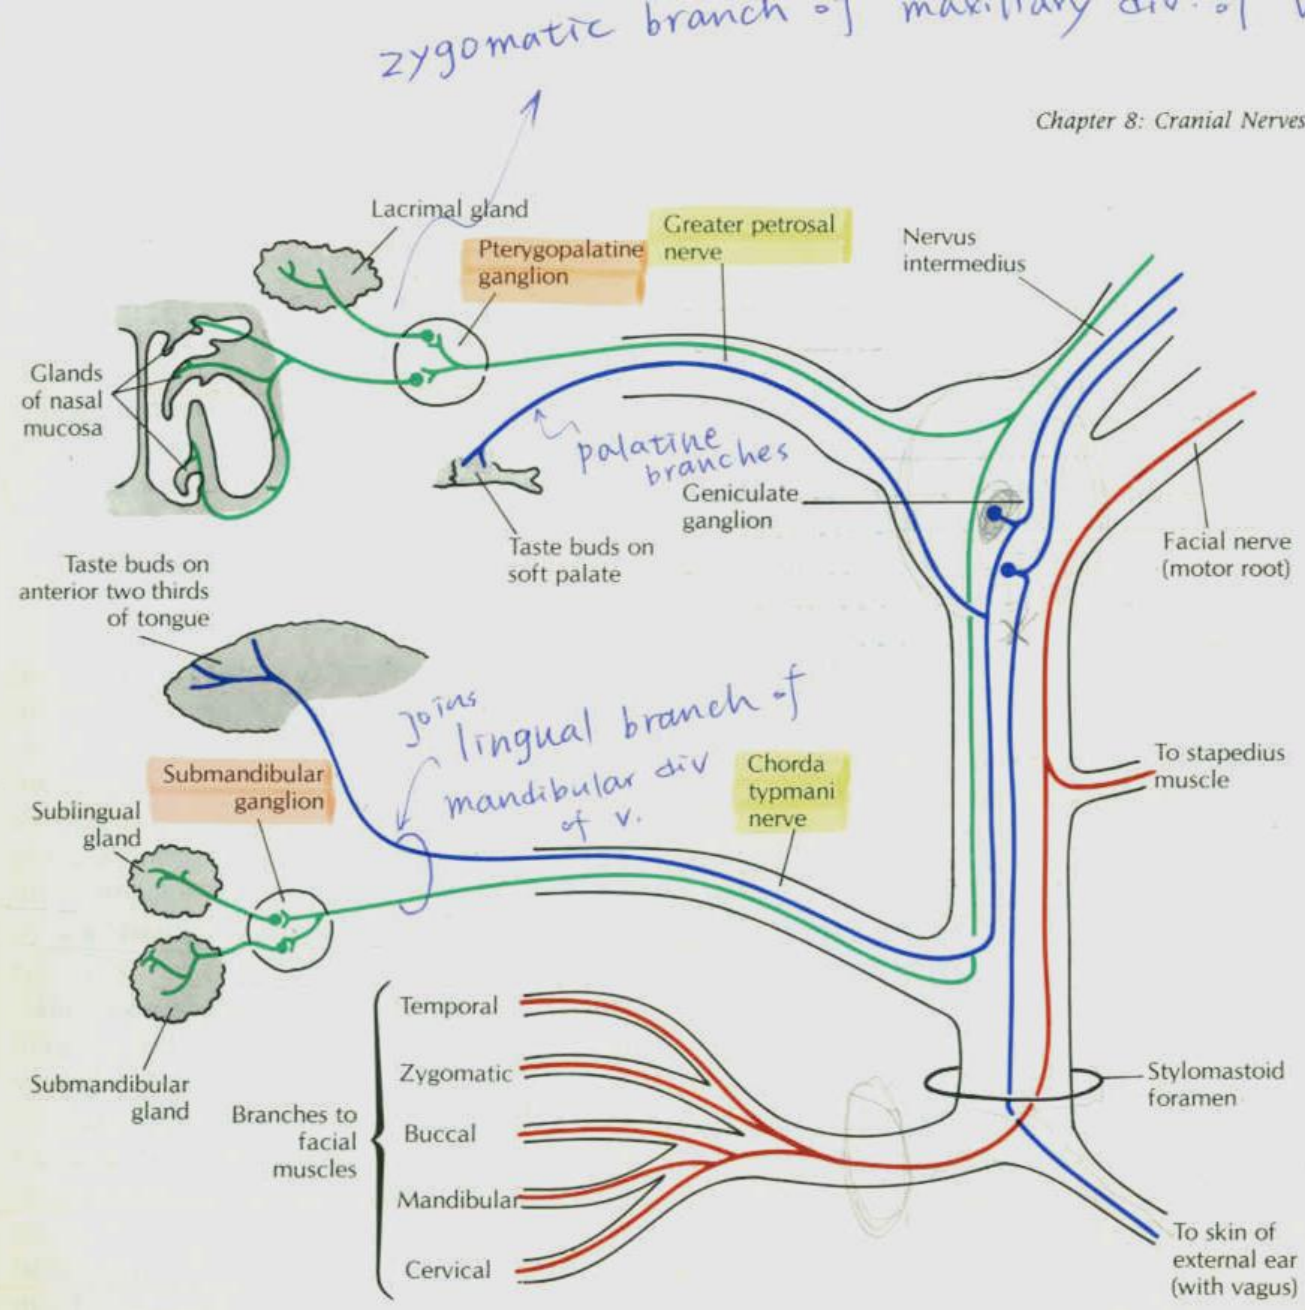 zygomatic branch of maxillary div. of
Chapter 8: Cranial Nerves
Lacrimal gland
Pterygopalatine
ganglion
Greater petrosal
nerve
Nervus
intermedius
Glands
of nasal
mucosa
palatine
branches
Geniculate
ganglion
Taste buds on
soft palate
Facial nerve
(motor root)
Taste buds on
anterior two thirds
of tongue
joins
lingual branch of
mandibular div
of V.
Submandibular
ganglion
Chorda
typmani
nerve
To stapedius
muscle
Sublingual
gland
Submandibular
gland
Branches to
facial
muscles
Temporal
Zygomatic
Buccal
Mandibular
Cervical
Stylomastoid
foramen
To skin of
external ear
(with vagus)